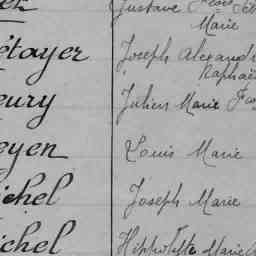 Gustave
Marie
étayer Joseph Alexandre
Raphaë
eury Julien Marie
eyen Louis Marie
ichel Joseph Marie
ichel Hippolyte Marie